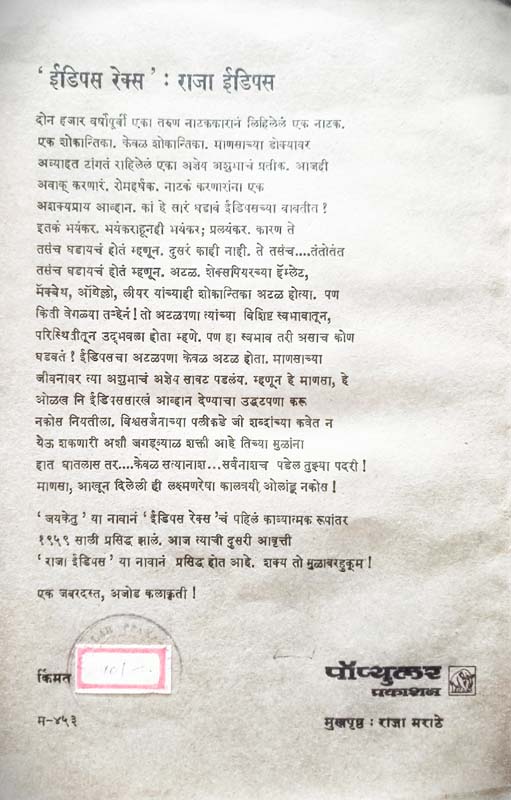 ‘ ईडिपस रेक्स ’ : राजा ईडिपस
दोन हजार वर्षांपूर्वी एका तरुण नाटककारानं लिहिलेलं एक नाटक.
एक शोकान्तिका. केवळ शोकान्तिका. माणसाच्या डोक्यावर
अव्याहत टांगतं राहिलेलं एका अज्ञेय अशुभाचं प्रतीक. आजही
अवाक् करणारं. रोमहर्षक. नाटकं करणारांना एक
अशक्यप्राय आव्हान. कां हे सारं घडावं ईडिपसच्या बाबतीत ?
इतकं भयंकर. भयंकराहूनही भयंकर; प्रलयंकर. कारण ते
तसंच घडायचं होतं म्हणून. दुसरं काही नाही. ते तसंच....तंतोतंत
तसंच घडायचं होतं म्हणून. अटळ. शेक्सपियरच्या हॅम्लेट,
मॅक्बेथ, ऑथेल्लो, लीयर यांच्याही शोकान्तिका अटळ होत्या. पण
किती वेगळ्या तऱ्हेनं ! तो अटळपणा त्यांच्या विशिष्ट स्वभावातून,
परिस्थितीतून उद्‌भवला होता म्हणे. पण हा स्वभाव तरी असाच कोण
घडवतं ? ईडिपसचा अटळपणा केवळ अटळ होता. माणसाच्या
जीवनावर त्या अशुभाचं अज्ञेय सावट पडलंय. म्हणून हे माणसा, हे
ओळख नि ईडिपससारखं आव्हान देण्याचा उद्धटपणा करू
नकोस नियतीला. विश्वसर्जनाच्या पलीकडे जी शब्दांच्या कवेत न
येऊ शकणारी अशी जगड्व्याळ शक्ती आहे तिच्या मुळांना
हात घातलास तर....केवळ सत्यानाश...सर्वनाशच पडेल तुझ्या पदरी !
माणसा, आखून दिलेली ही लक्ष्मणरेषा कालत्रयी ओलांडू नकोस !
‘ जयकेतु ’ या नावानं ‘ ईडिपस रेक्स ’चं पहिलं काव्यात्मक रूपांतर
१९५९ साली प्रसिद्ध झालं. आज त्याची दुसरी आवृत्ती
‘ राजा ईडिपस ’ या नावानं प्रसिद्ध होत आहे. शक्य तो मुळाबरहुकूम !
एक जबरदस्त, अजोड कलाकृती !
किंमत
पॉप्युलर
प्रकाशन
म-४५३
मुखपृष्ठ : राजा मराठे